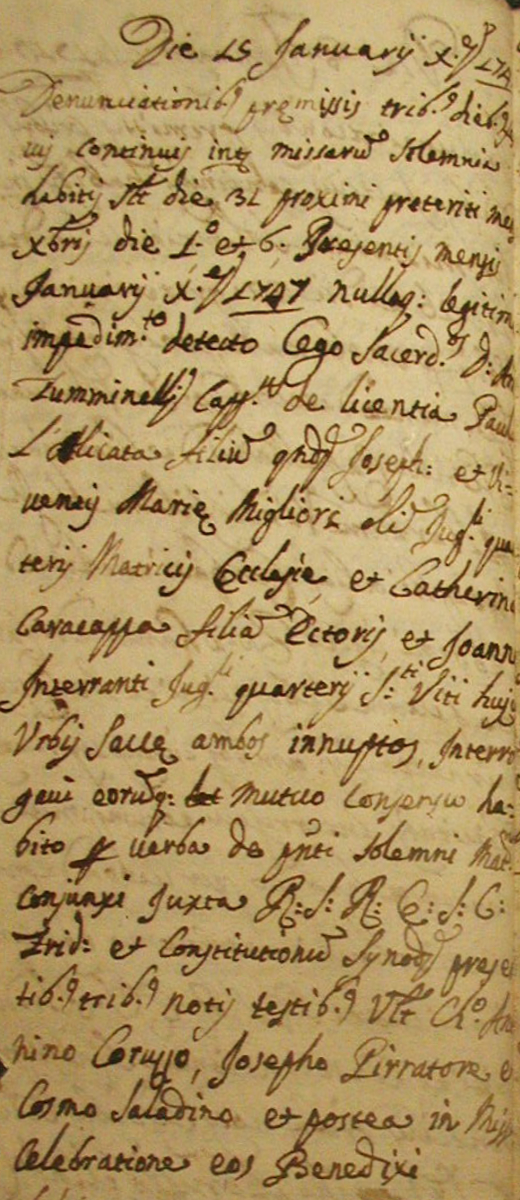 Die 15 Januarij X.e Ind. 174
Denunciationibꝰ premissis tribꝰ diebꝰ
uis continuis inter missarũ solemnia
habitis scilt die 31 proximi preteriti mens
xbris die 1.o et 6. Presentis mensis
Januarij X.e Ind. 1747 nulloq: legitim
impedim.to detecto Ego Sacerd.s D: An
Zumminelli Capp.s de licentia Paul
L'Alliciata filiũ qnd. Joseph: et Vi-
ventis Marie Migliori olim Jug.li quar
terij Matricis Ecclesie, et Catherin
Caracappa filiã Ettoris, et Joann
Interranti Jug.li quarterij S.ti Viti huju
Urbis Sacce ambos innuptos, Interro
gavi eorũq: mutuo consensu ha-
bito p verba de pnti solemni Mat.
conjunxi juxta R: S: R: E: S: C:
Trid: et Constitutionũ Synod. prese
tibꝰ tribꝰ notis testibꝰ vlt Cl.o An
nino Corusso, Josepho Pirratore e
Cosmo Saladino et postea in Miss
Celebratione eos Benedixi